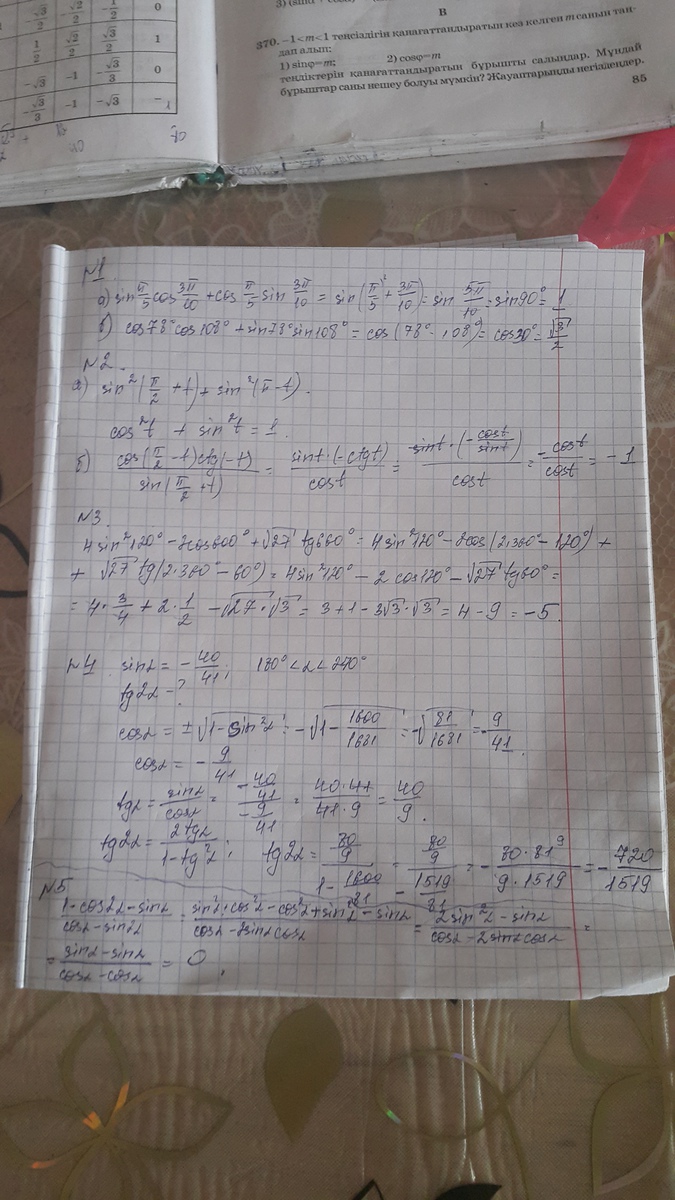 3) (sinα +
В
370. −1<m<1 теңсіздігін қанағаттандыратын кез келген m санын таң-
дап алып:
1) sinφ=m; 2) cosφ=m
теңдіктерін қанағаттандыратын бұрышты салыңдар. Мұндай
бұрыштар саны нешеу болуы мүмкін? Жауаптарыңды негіздеңдер.
85
0
1/2 √2/2 √3/2 1
−√3 −1 −√3/3 0
−√3/3 −1 −√3 −
N1.
а) sin π/5 cos 3π/10 + cos π/5 sin 3π/10 = sin(π/5 + 3π/10) = sin 5π/10 = sin90° = 1
в) cos78° cos108° + sin78° sin108° = cos(78° − 108°) = cos30° = √3/2
N2.
а) sin²(π/2 + t) + sin²(π − t).
cos²t + sin²t = 1.
б) cos(π/2 − t)ctg(−t) / sin(π/2 + t) = sint·(−ctgt) / cost = sint·(−cost/sint) / cost = −cost/cost = −1
N3.
4sin²120° − 2cos600° + √27 tg660° = 4sin²120° − 2cos(2·360° − 120°) +
+ √27 tg(2·360° − 60°) = 4sin²120° − 2cos120° − √27 tg60° =
= 4·3/4 + 2·1/2 − √27·√3 = 3+1 − 3√3·√3 = 4 − 9 = −5.
N4 sinα = −40/41; 180° < α < 270°
tg2α − ?
cosα = ±√(1−sin²α) = −√(1 − 1600/1681) = −√(81/1681) = −9/41.
cosα = −9/41
tgα = sinα/cosα = (−40/41)/(−9/41) = 40·41/41·9 = 40/9.
tg2α = 2tgα/(1−tg²α); tg2α = (80/9)/(1 − 1600/81) = (80/9)/(−1519/81) = −80·81⁹/9·1519 = −720/1519
N5
(1−cos2α−sinα)/(cosα−sin2α) = (sin²+cos²−cos²+sin²−sinα)/(cosα−2sinα cosα) = (2sin²α−sinα)/(cosα−2sinαcosα) =
= (sinα−sinα)/(cosα−cosα) = 0.